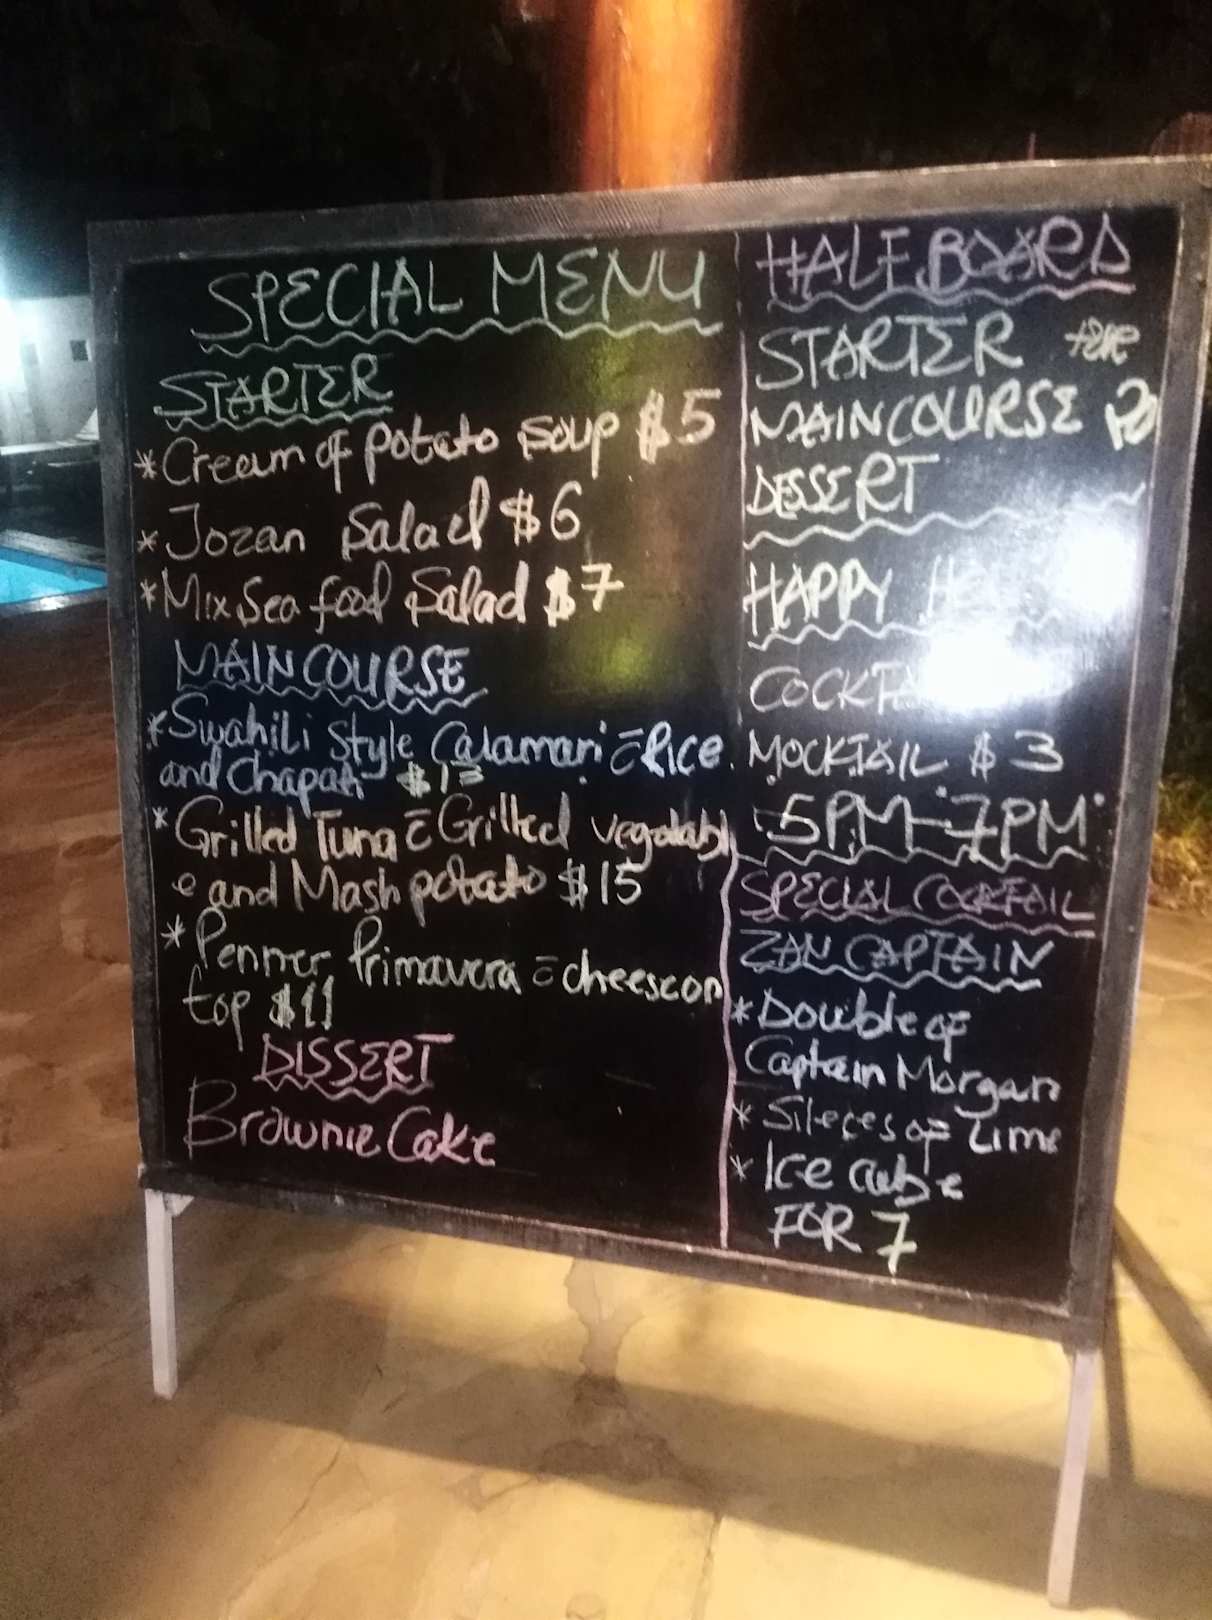 SPECIAL MENU
STARTER
*Cream of potato soup $5
*Jozan Salad $6
*Mix Sea food Salad $7
MAIN COURSE
*Swahili Style Calamari c̄ Rice
and Chapati
*Grilled Tuna c̄ Grilled vegetabl
e and Mash potato $15
*Penner Primavera c̄ cheese on
top $11
DISSERT
Brownie Cake
HALF BOARD
STARTER
MAIN COURSE
DESSERT
HAPPY
MOCKTAIL $3
5PM-7PM
SPECIAL COCKTAIL
ZAN CAPTAIN
*Double of
Captain Morgan
*Sileces of Lime
*Ice cube
FOR 7